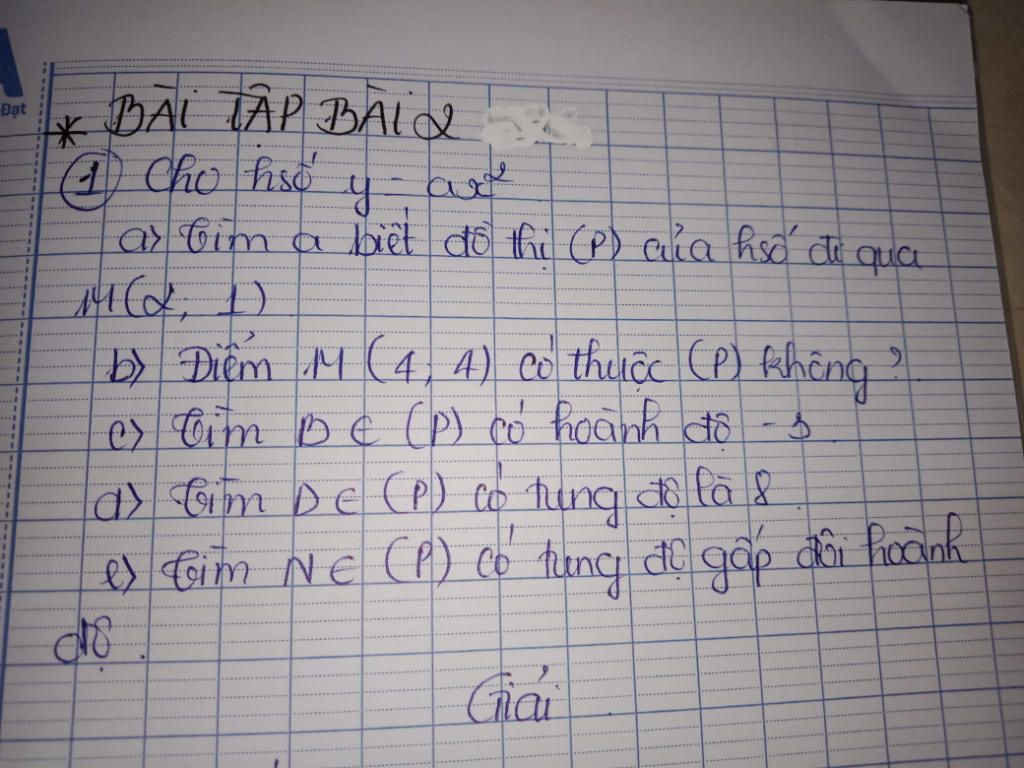 Đạt
* BÀI TẬP BÀI 2
① Cho hsố y = ax²
a) Tìm a biết đồ thị (P) của hsố đi qua
M(2, 1)
b) Điểm M (4, 4) có thuộc (P) không?
c) Tìm B ∈ (P) có hoành độ -3
d) Tìm D ∈ (P) có tung độ là 8.
e) Tìm N ∈ (P) có tung độ gấp đôi hoành
độ.
Giải